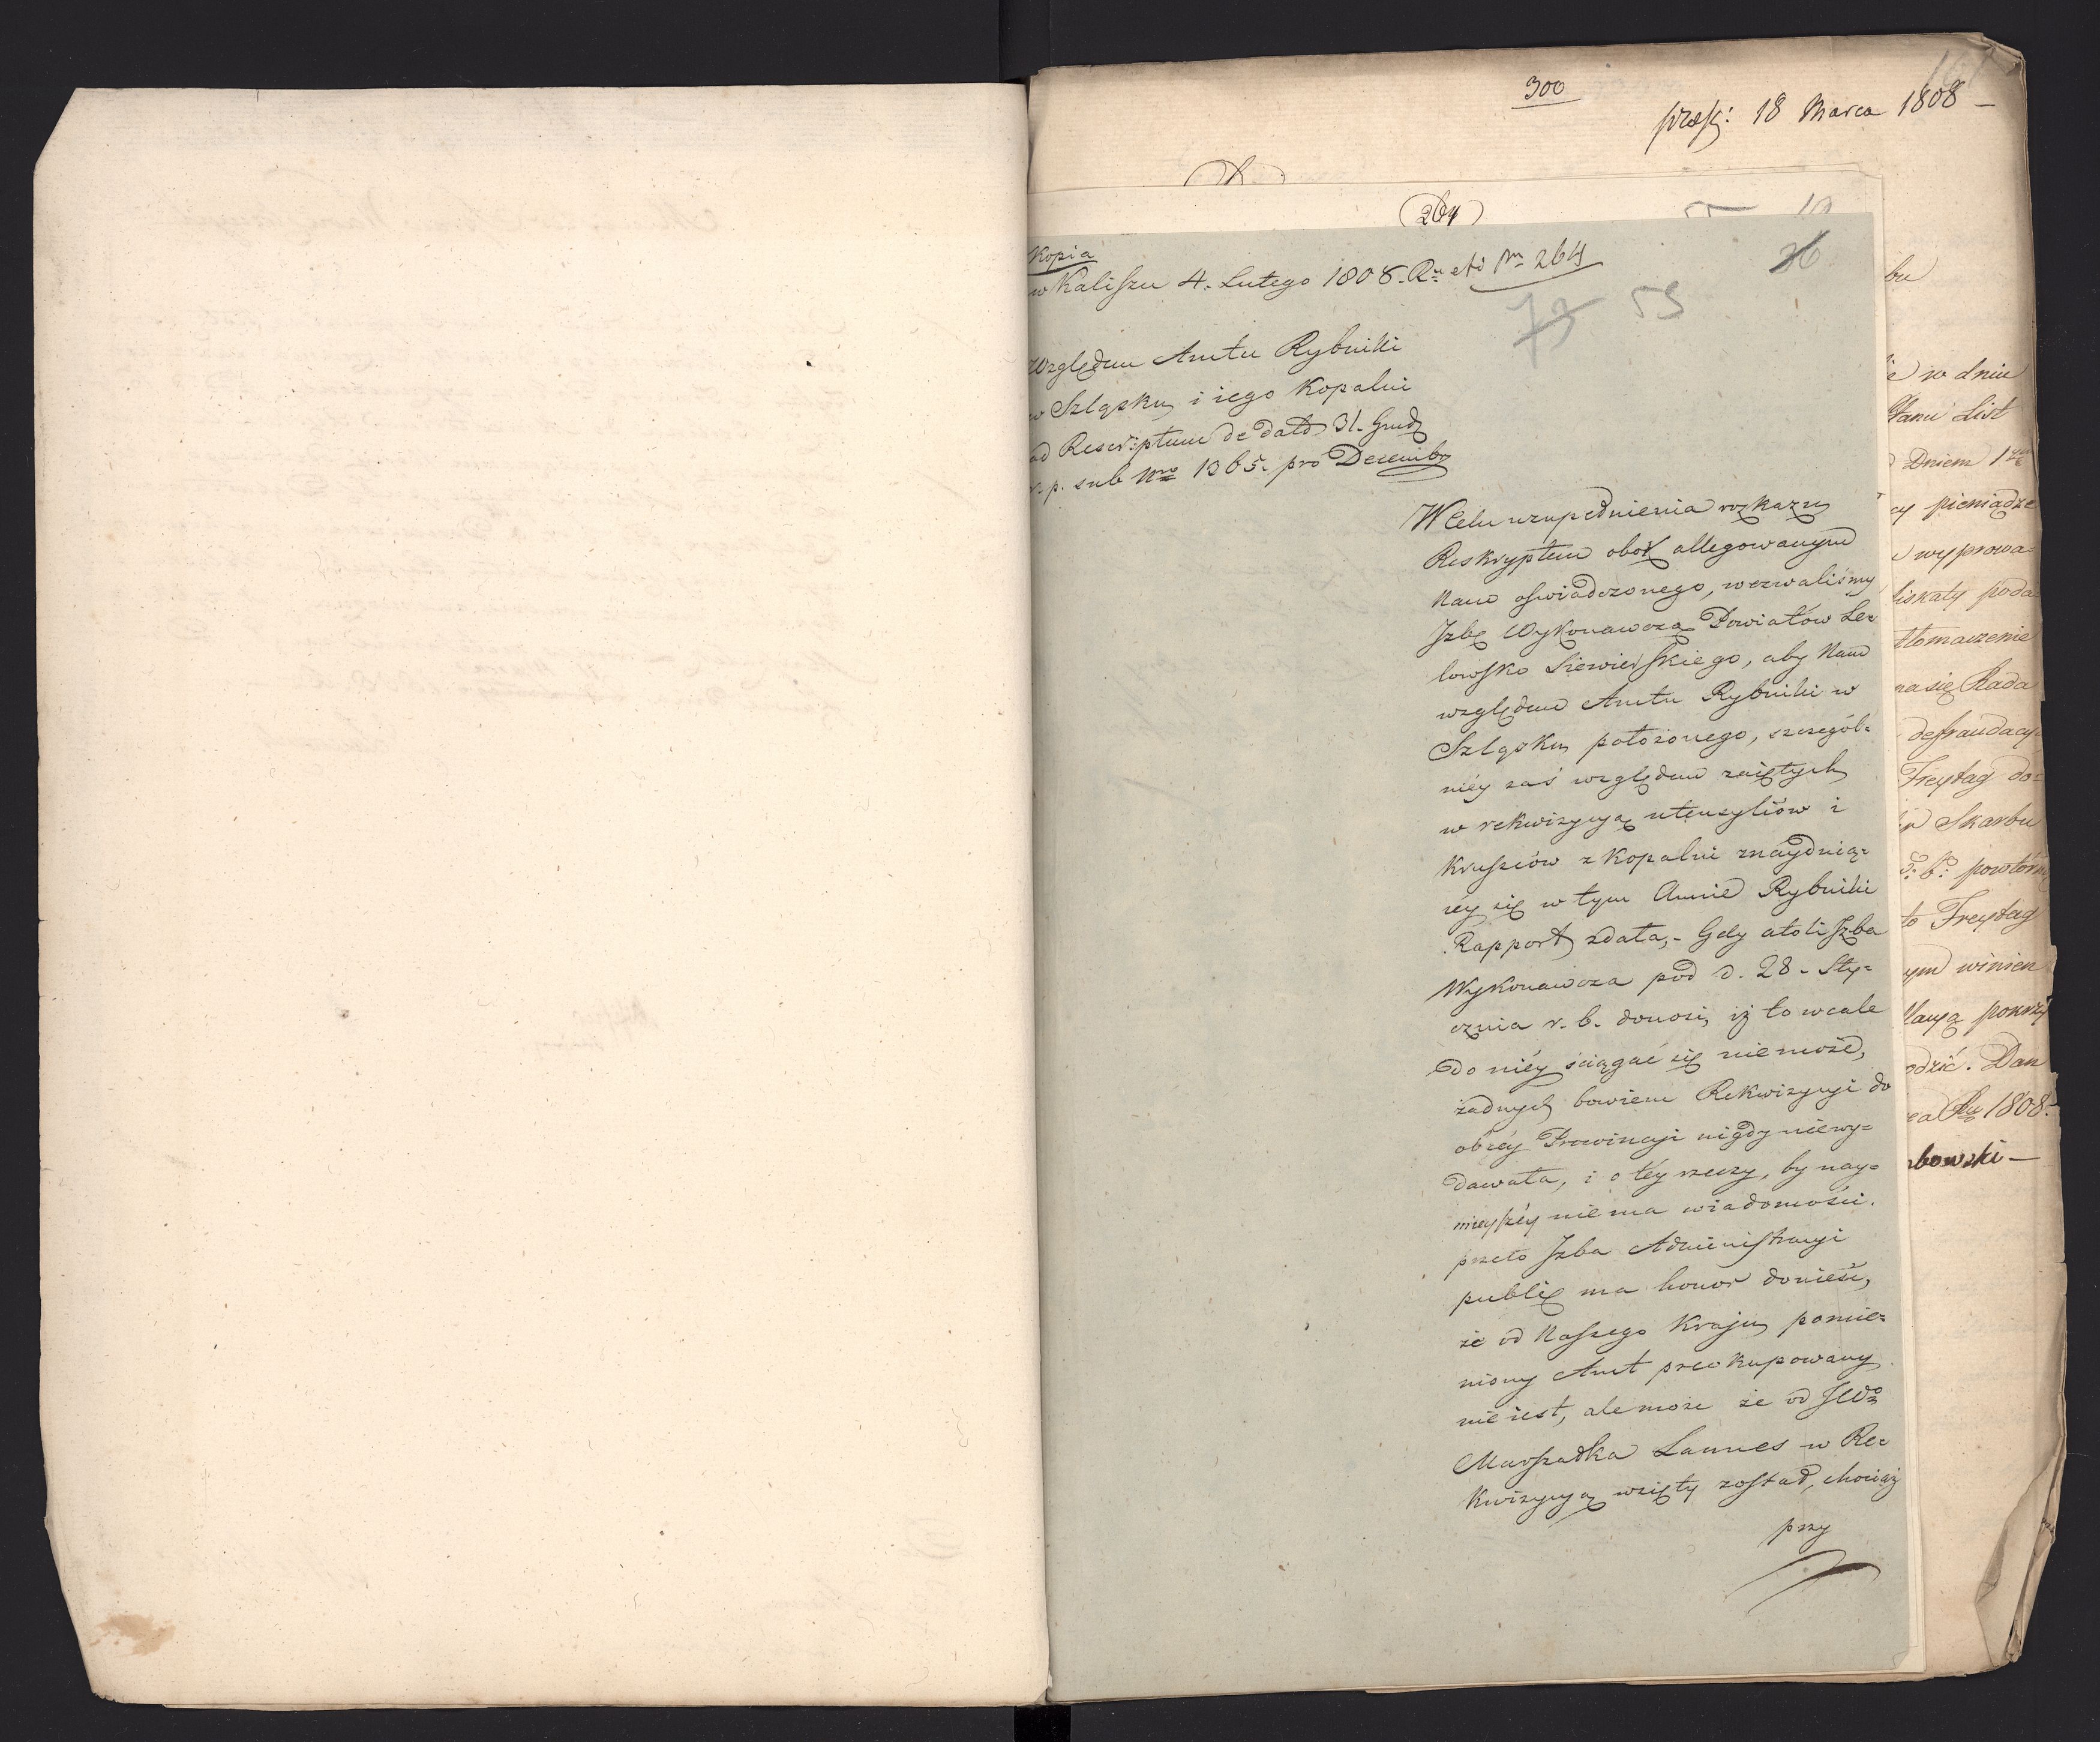 300
18 Marca 1808 —
264
Kopia
w Kaliszu 4. Lutego 1808.
264
36
73 53
Względem Amtu Rybniki
w Szląsku i iego Kopalni
ad Rescriptum de dato 31. Grud
r. p. sub Nro 1365. pro Decembr
W Celu uzupełnienia rozkazu
Reskryptem obok allegowanym
Nam oświadczonego, wezwaliśmy
Jzbę Wykonawczą Powiatów Le=
lowsko Siewierskiego, aby Nam
względem Amtu Rybniki w
Szląsku położonego, szczegól=
niéy zaś względem zaiętych
w rekwizycyą utensyliów i
Kruszców z Kopalni znayduią=
céy się w tym Amcie Rybniki
Rapport zdała,- Gdy atoli Jzba
Wykonawcza pod d. 28. Sty=
cznia r. b. donosi, iż to wcale
do niéy ściągać się niemoże,
żadnych bowiem Rekwizycyi do
obcéy Prowincyi nigdy niewy=
dawała, i o téy rzeczy, by nay=
mieyszéy niema wiadomości.
przeto Jzba Administracyi
public ma honor donieść,
że od Naszego Kraju pomie=
niony Amt preokupowany
nie iest, ale może że od JWo
Marszałka Lannes w Re=
kwizycyą wzięty został, chociaż
przy
bu
w dniu
List
Dniem 1
pieniądze
wyprowa=
poda=
tłomaczenie
się Rada
defraudacy
Freytag do=
Skarbu
powtórn
to Freytag
winien
pokrzy
Dan
1808.
bowski —